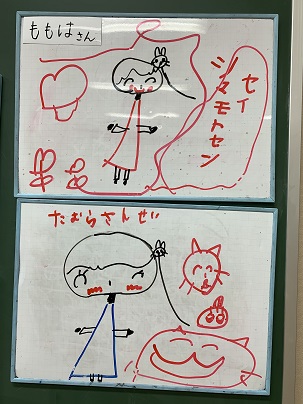 ももはさん
シタモトセン
セイ
たむらさんせい